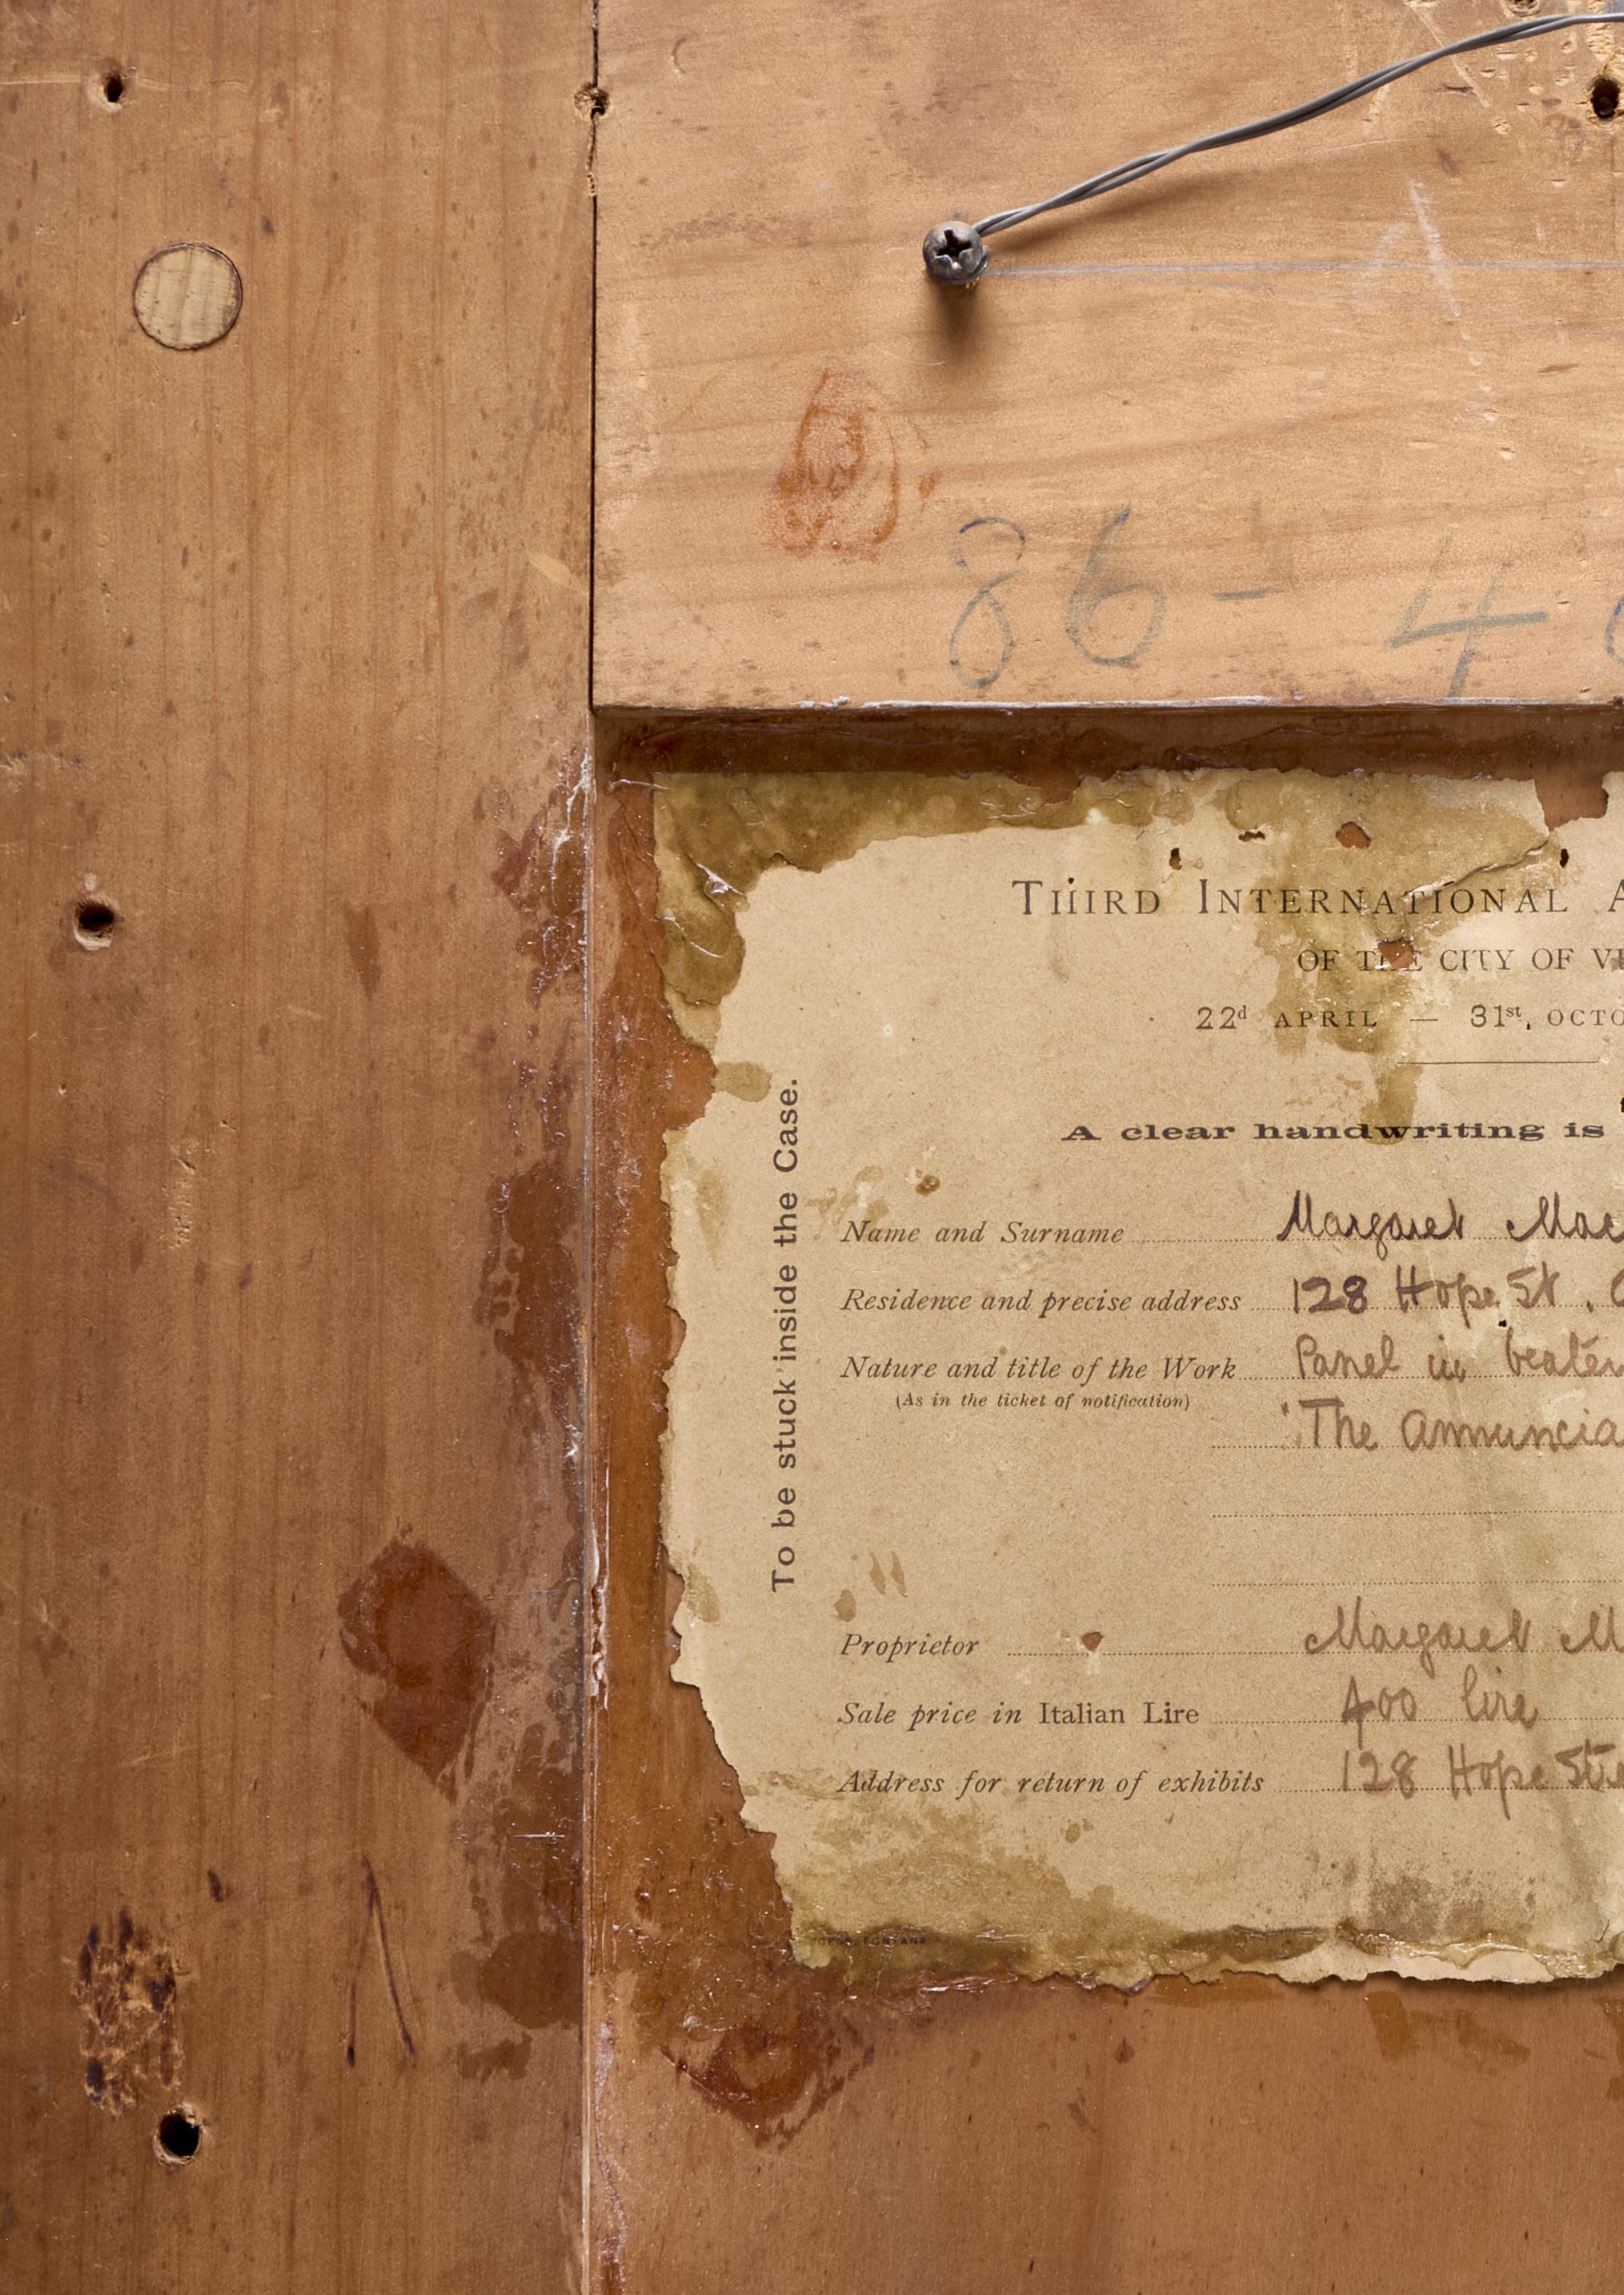 86 - 4
THIRD INTERNATIONAL A
OF THE CITY OF VE
22d APRIL — 31st, OCTO
A clear handwriting is
To be stuck inside the Case.
Name and Surname Margaret Mac
Residence and precise address 128 Hope St.
Nature and title of the Work Panel in beaten
(As in the ticket of notification)
"The Annuncia
Proprietor Margaret M
Sale price in Italian Lire 400 lire
Address for return of exhibits 128 Hope Stre